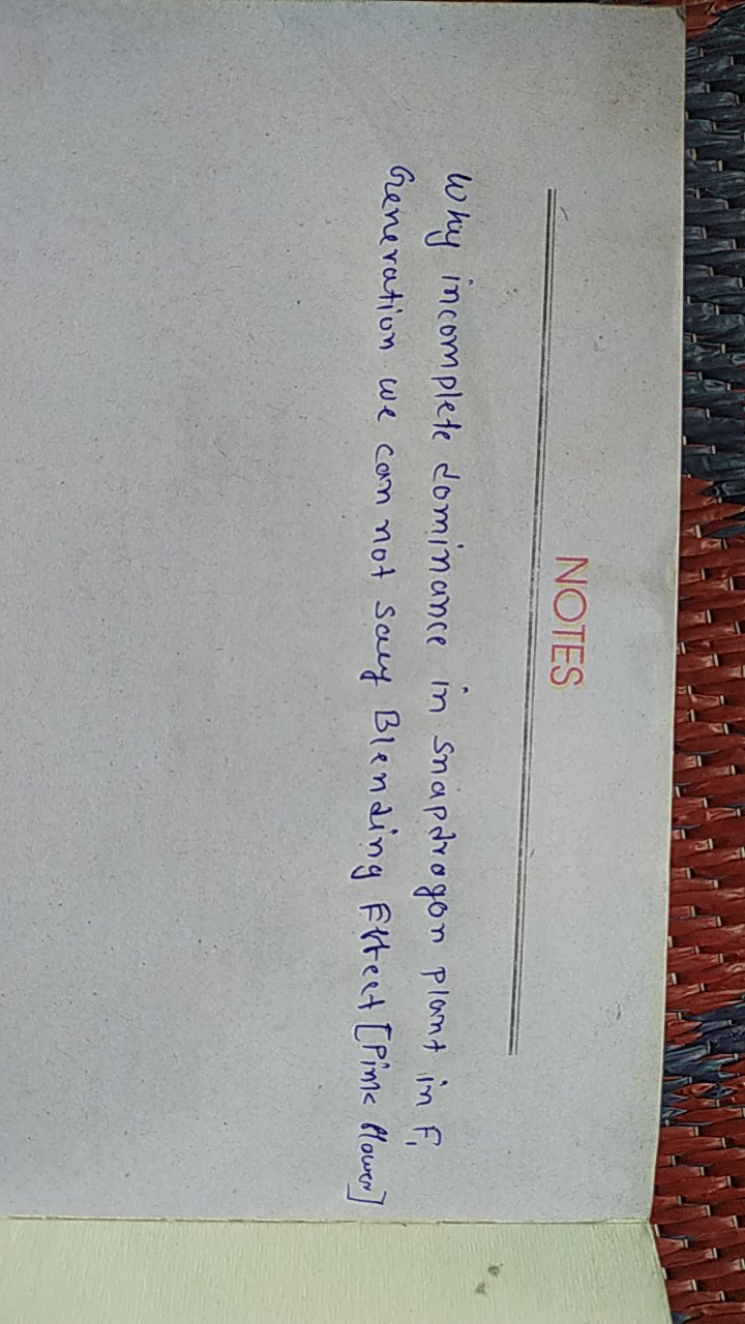 NOTES
Why incomplete dominance in snapdragon plant in F1
Generation we can not say Blending Effect [Pink flower]